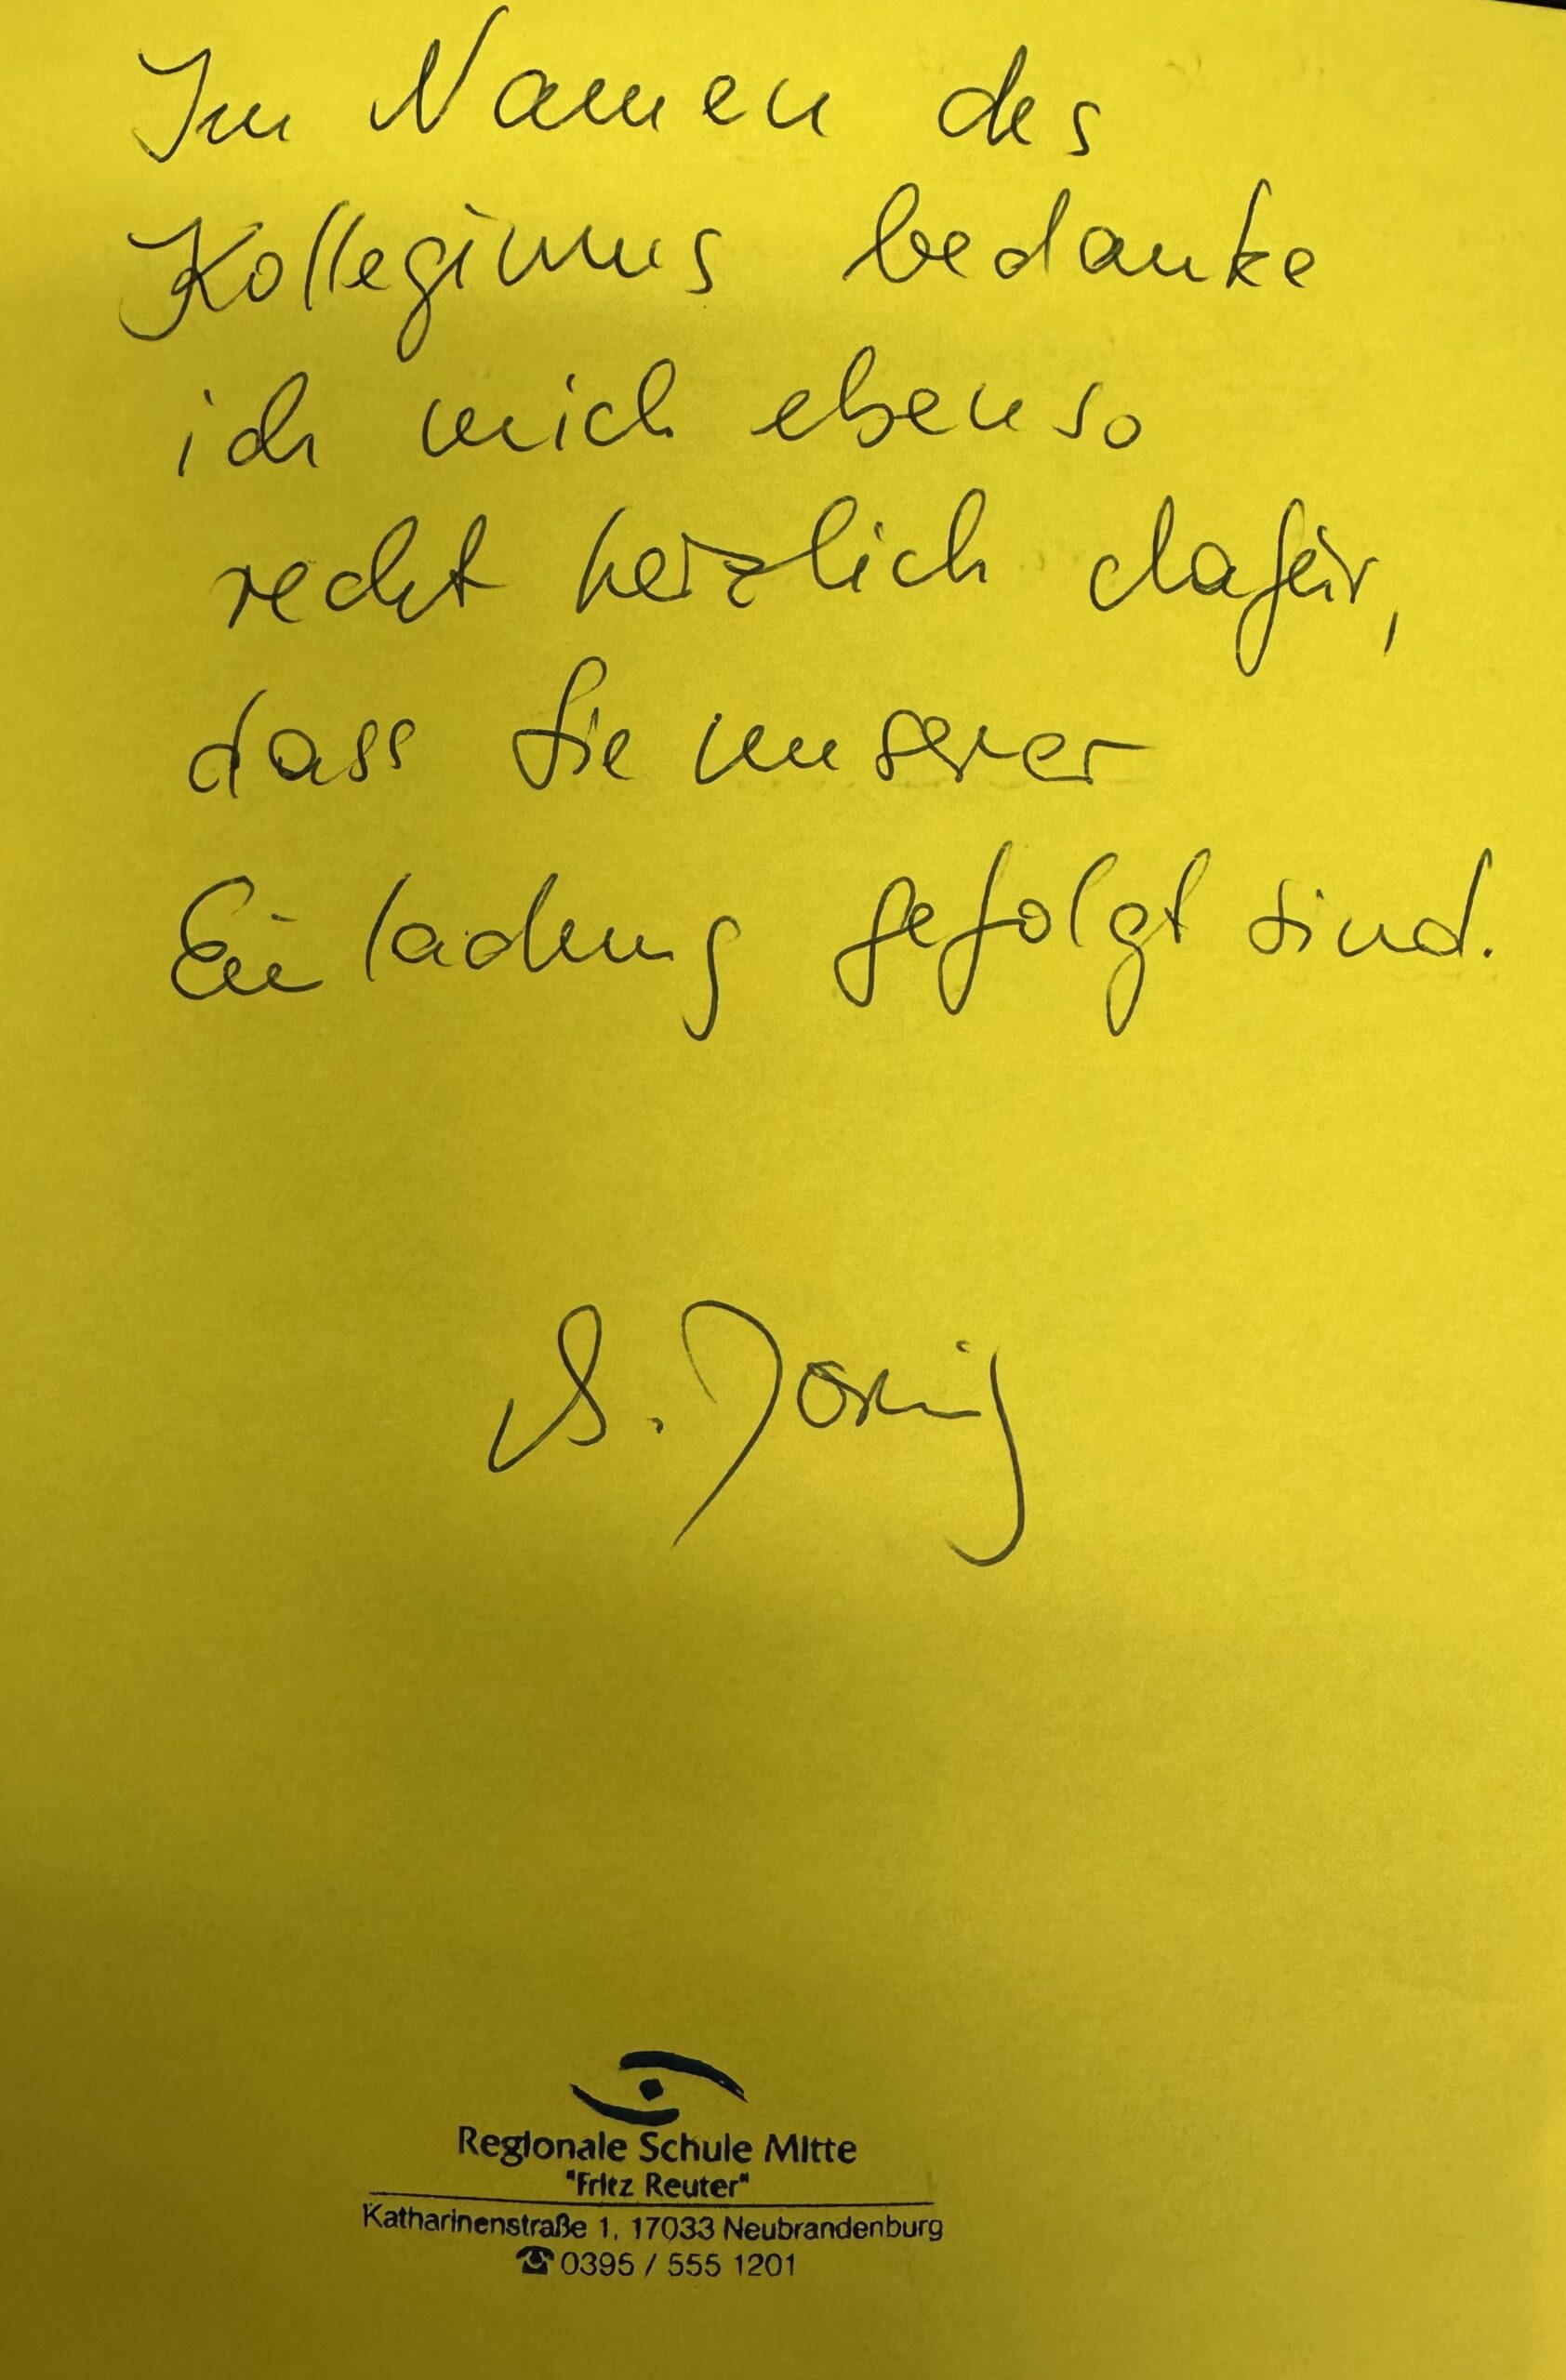 Im Namen des
Kollegiums bedanke
ich mich ebenso
recht herzlich dafür,
dass Sie unserer
Einladung gefolgt sind.
Regionale Schule Mitte
"Fritz Reuter"
Katharinenstraße 1, 17033 Neubrandenburg
☎ 0395 / 555 1201